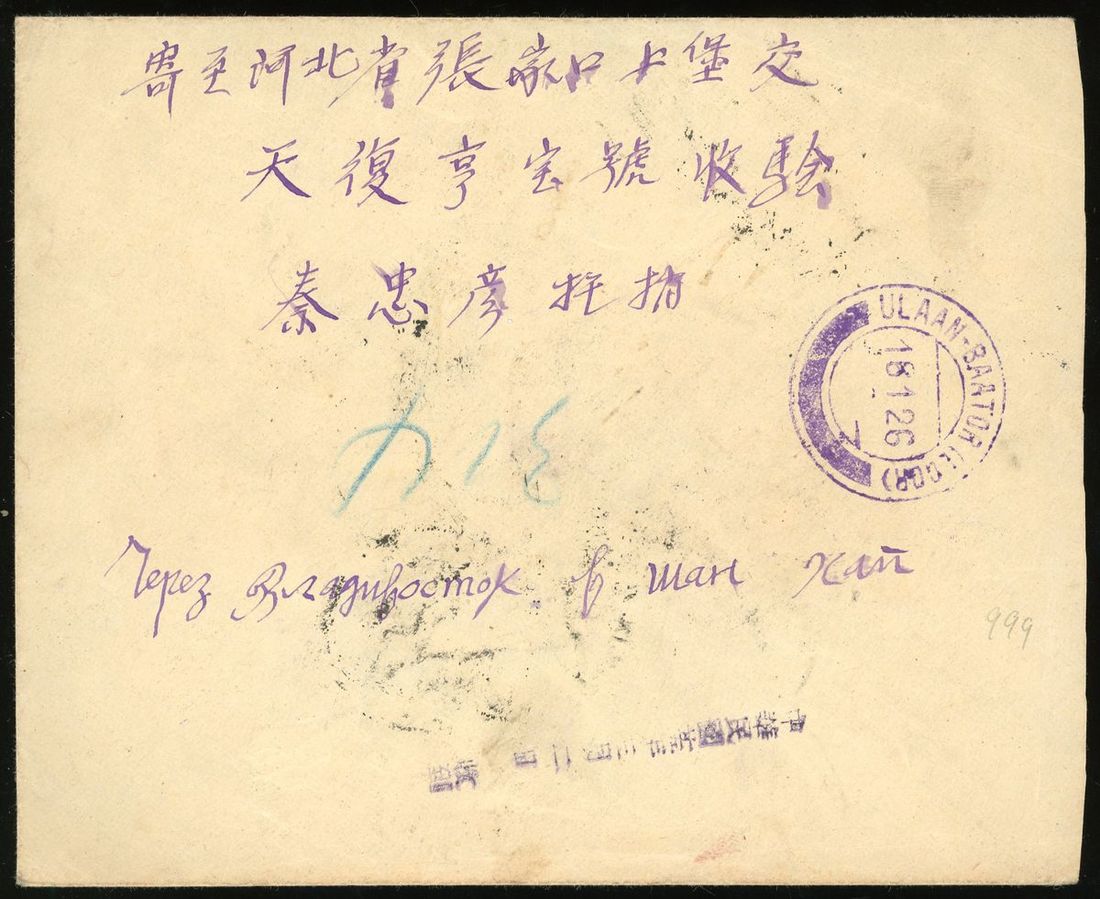 寄至阿北省張家口上堡交
天復亨宝號收驗
秦忠彦拄
ULAAN-BAATOR
18 1 26
Через Владивосток в шан хай
999